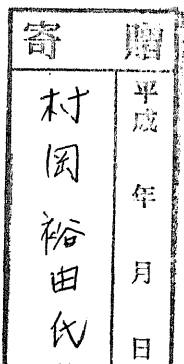 寄贈
平成　年　月　日
村岡裕由代